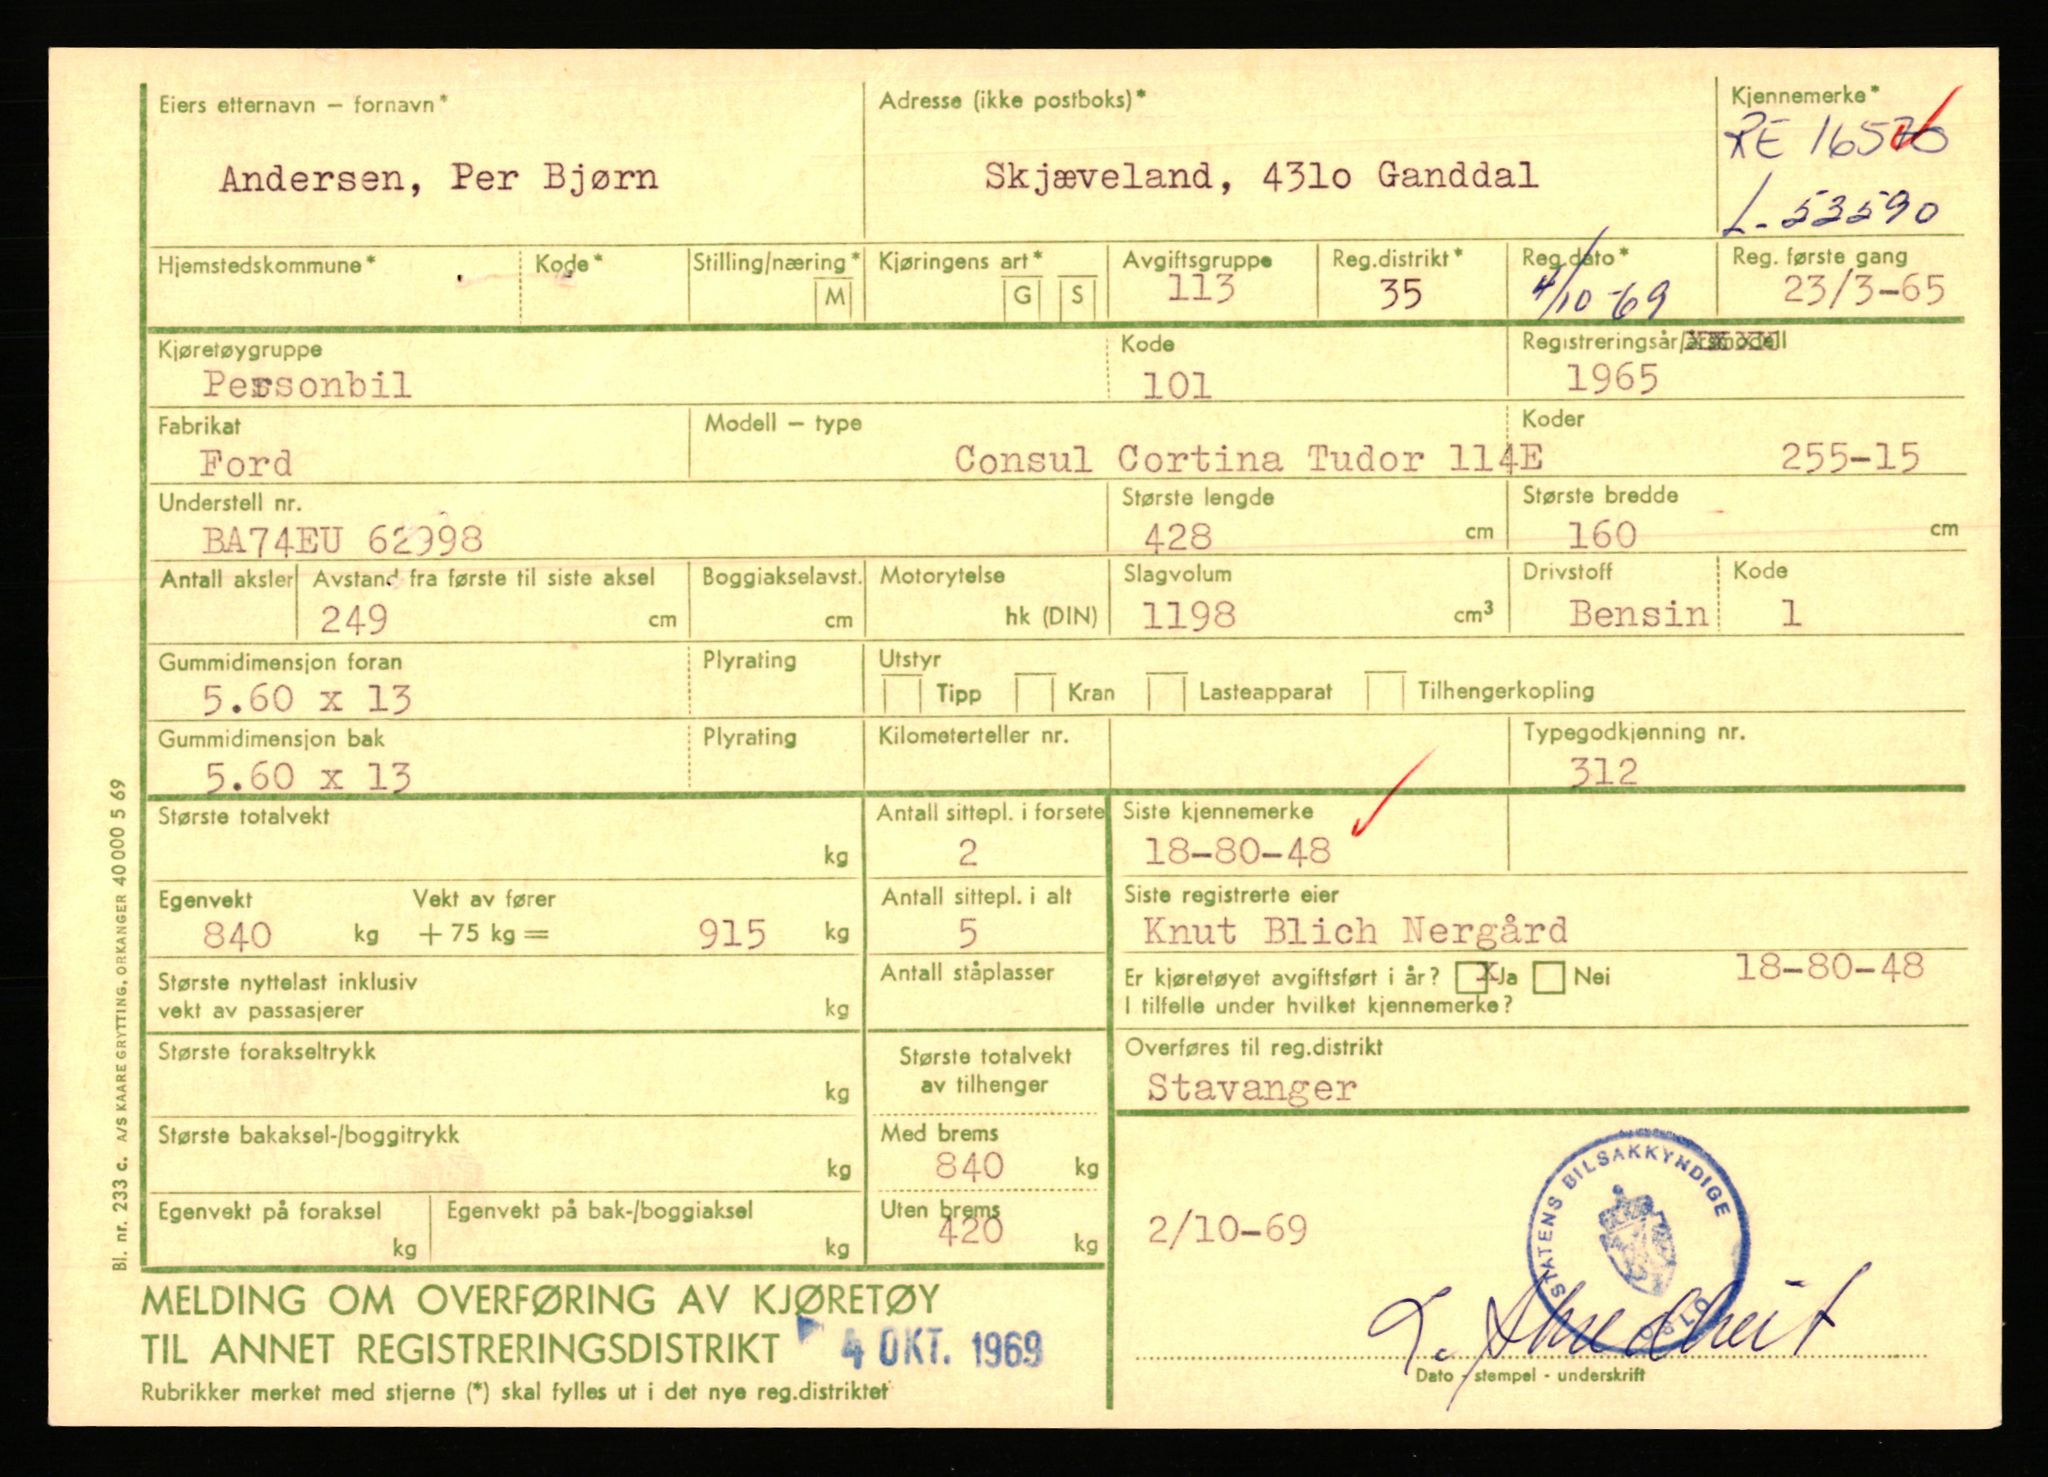 Eiers etternavn – fornavn*
Andersen, Per Bjørn
Adresse (ikke postboks)*
Skjæveland, 431o Ganddal
Kjennemerke*
RE 16570
L-53590
Hjemstedskommune*
Kode*
Stilling/næring*
M
Kjøringens art*
G S
Avgiftsgruppe
113
Reg.distrikt*
35
Reg.dato*
4/10-69
Reg. første gang
23/3-65
Kjøretøygruppe
Personbil
Kode
101
Registreringsår/årsmodell
1965
Fabrikat
Ford
Modell – type
Consul Cortina Tudor 114E
Koder
255-15
Understell nr.
BA74EU 62998
Største lengde
428 cm
Største bredde
160 cm
Antall aksler
Avstand fra første til siste aksel
249 cm
Boggiakselavst.
cm
Motorytelse
hk (DIN)
Slagvolum
1198 cm³
Drivstoff
Bensin
Kode
1
Gummidimensjon foran
5.60 x 13
Plyrating
Utstyr
Tipp Kran Lasteapparat Tilhengerkopling
Gummidimensjon bak
5.60 x 13
Plyrating
Kilometerteller nr.
Typegodkjenning nr.
312
Største totalvekt
kg
Antall sittepl. i forsete
2
Siste kjennemerke
18-80-48
Egenvekt Vekt av fører
840 kg + 75 kg = 915 kg
Antall sittepl. i alt
5
Siste registrerte eier
Knut Blich Nergård
Største nyttelast inklusiv
vekt av passasjerer kg
Antall ståplasser
Er kjøretøyet avgiftsført i år? x Ja Nei 18-80-48
I tilfelle under hvilket kjennemerke?
Største forakseltrykk
kg
Største totalvekt
av tilhenger
Overføres til reg.distrikt
Stavanger
Største bakaksel-/boggitrykk
kg
Med brems
840 kg
Egenvekt på foraksel
kg
Egenvekt på bak-/boggiaksel
kg
Uten brems
420 kg
2/10-69
STATENS BILSAKKYNDIGE
OSLO
MELDING OM OVERFØRING AV KJØRETØY
TIL ANNET REGISTRERINGSDISTRIKT
4 OKT. 1969
Rubrikker merket med stjerne (*) skal fylles ut i det nye reg.distriktet
Dato - stempel - underskrift
Bl. nr. 233 c. A/S KAARE GRYTTING, ORKANGER 40 000 5 69